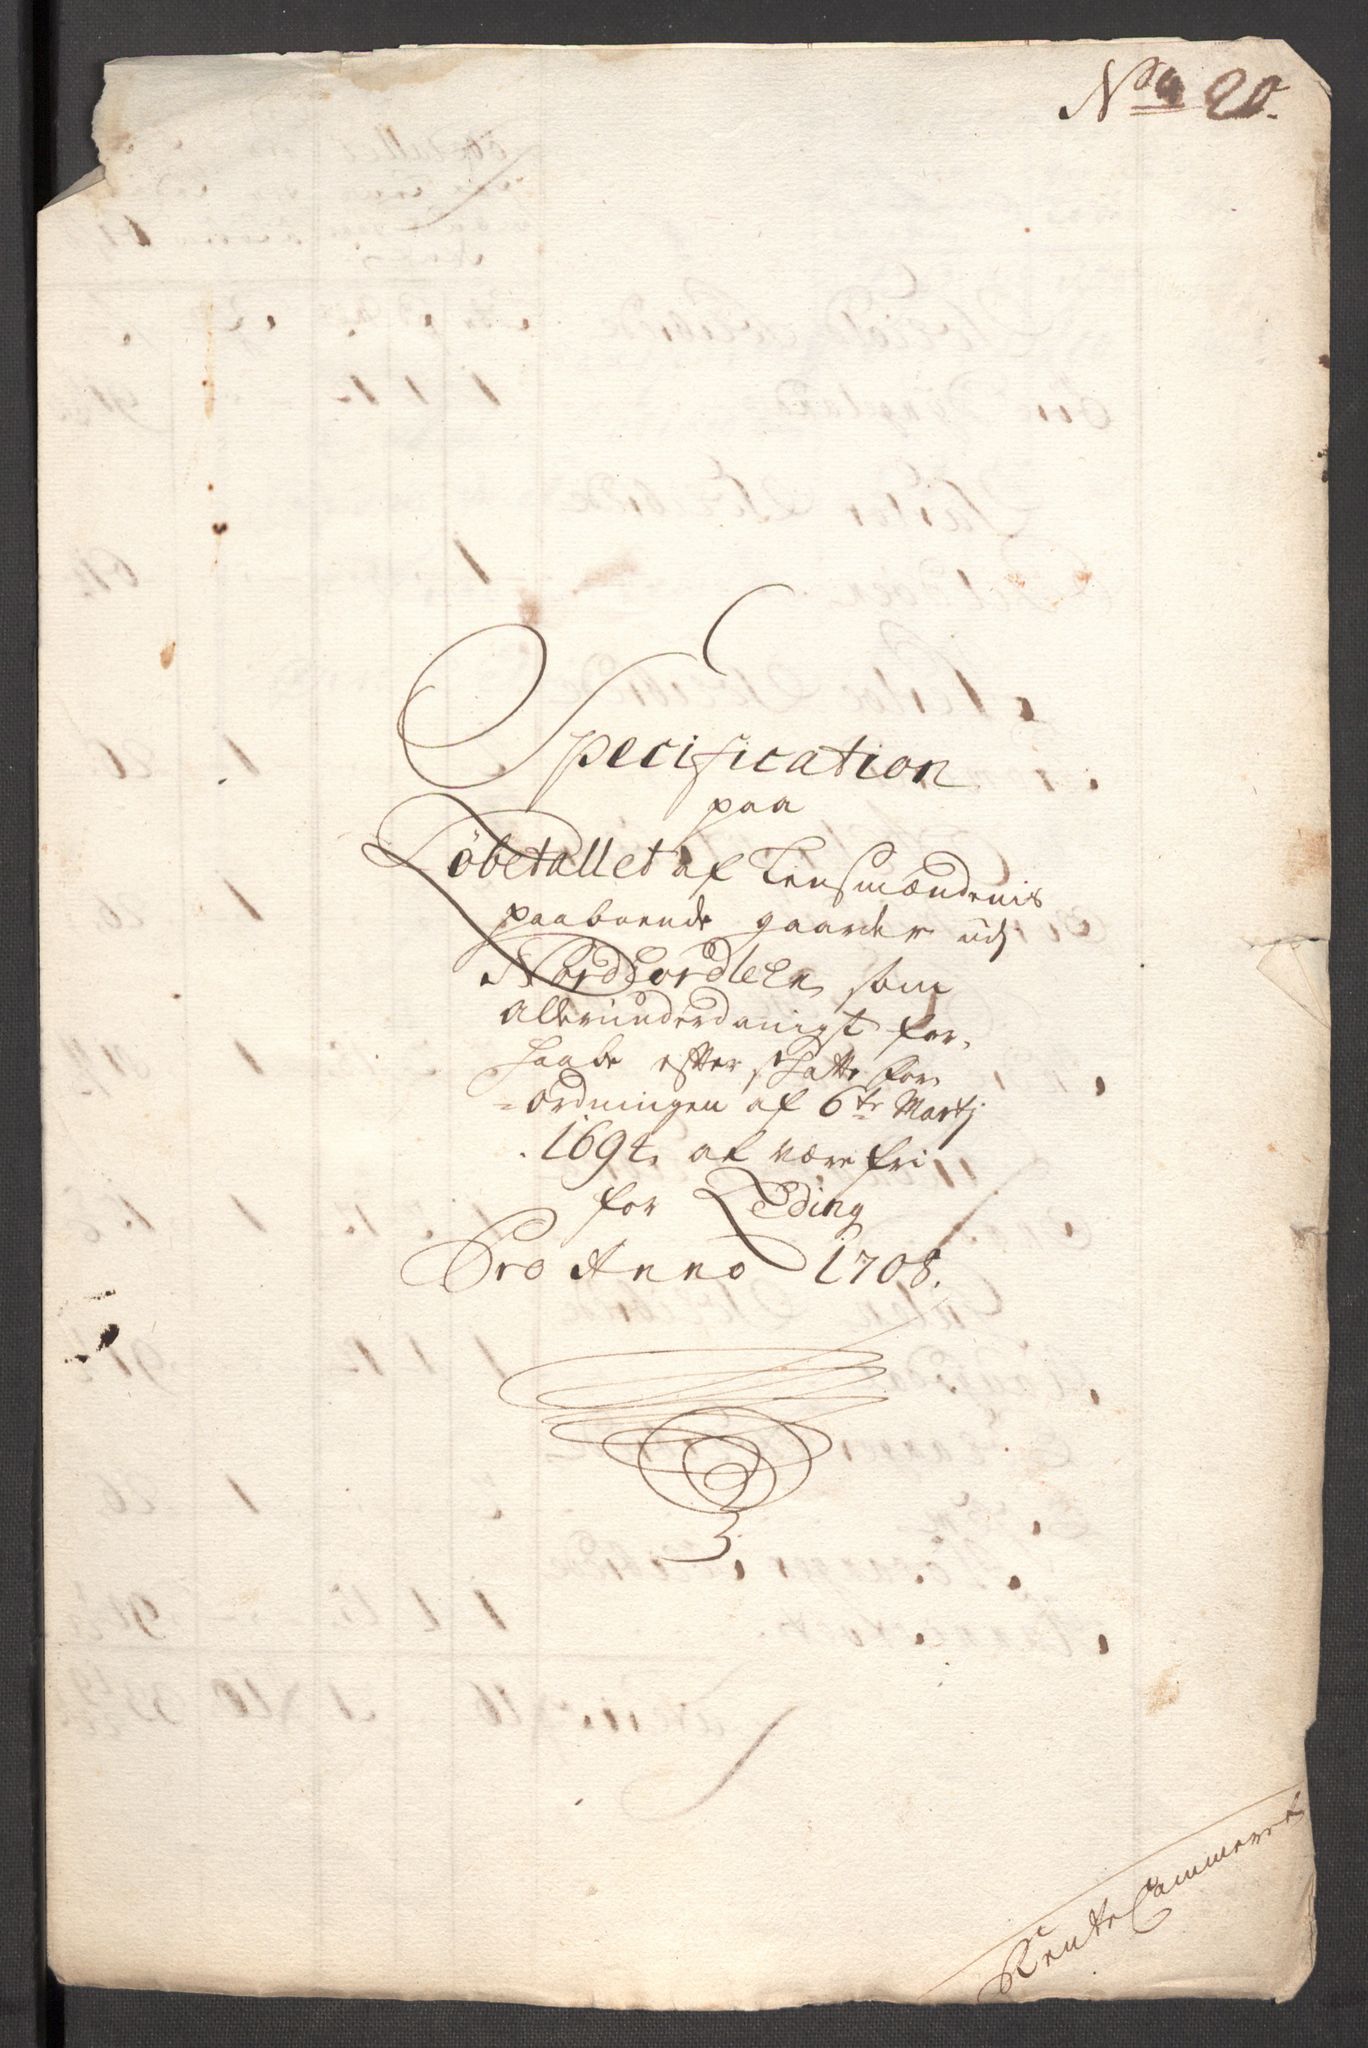 No 20.
Specification
paa
Løbetallet af Lensmændenis
paaboende gaarder udj
Nordhordlehn som
allerunderdanigst for¬
haabe efter skatte for
-ordningen af 6te Martj
1694 at være fri
for Leding
Pro Anno 1708.
RenteCammeret